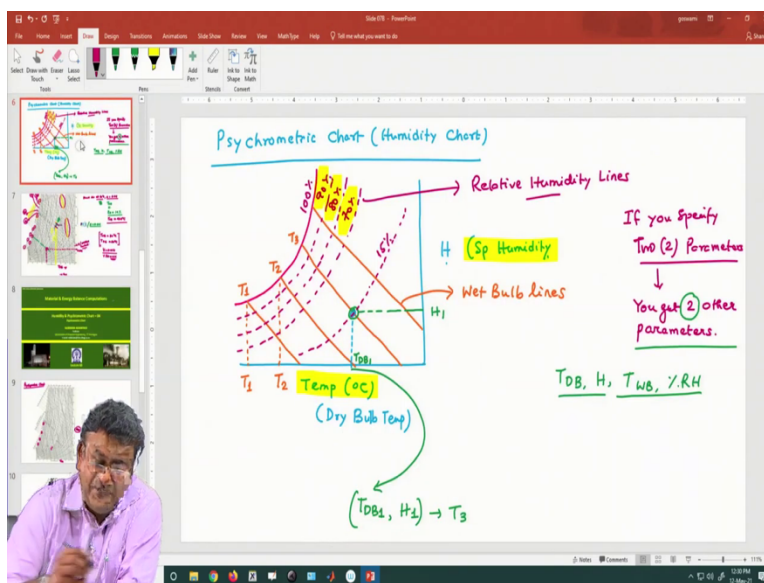 Slide 078 - PowerPoint
goswami
File Home Insert Draw Design Transitions Animations Slide Show Review View MathType Help Tell me what you want to do
Share
Select
Draw with Touch
Eraser
Lasso Select
Add Pen
Ruler
Ink to Shape
Ink to Math
Tools
Pens
Stencils
Convert
6
7
8
9
10
Psychrometric Chart (Humidity Chart)
100%
90%
80%
70%
Relative Humidity Lines
15%
H (Sp Humidity
Wet Bulb lines
H1
T1
T2
T3
TDB1
T1
T2
Temp (OC)
(Dry Bulb Temp)
(TDB1, H1) → T3
If you Specify
Two (2) Parameters
You get 2 other
parameters.
TDB, H, TWB, %RH
Notes
Comments
111%
12:30 PM
12-May-21